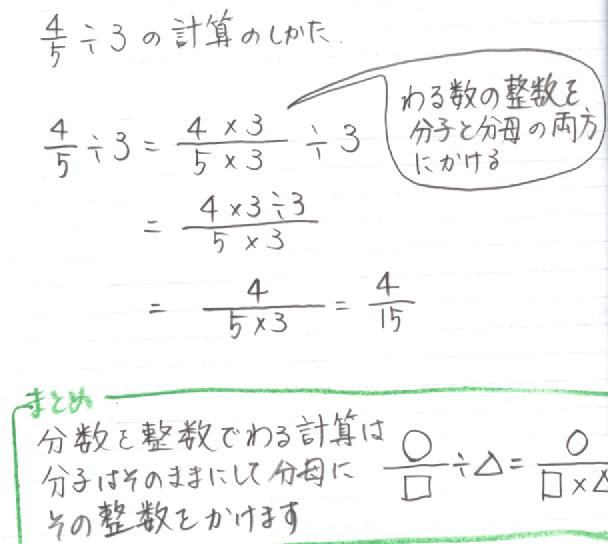 4/5 ÷ 3 の計算のしかた.
わる数の整数を
分子と分母の両方
にかける
4/5 ÷ 3 = (4 × 3)/(5 × 3) ÷ 3
= (4 × 3 ÷ 3)/(5 × 3)
= 4/(5 × 3) = 4/15
まとめ
分数を整数でわる計算は
分子はそのままにして分母に
その整数をかけます
○/□ ÷ △ = ○/(□ × △)